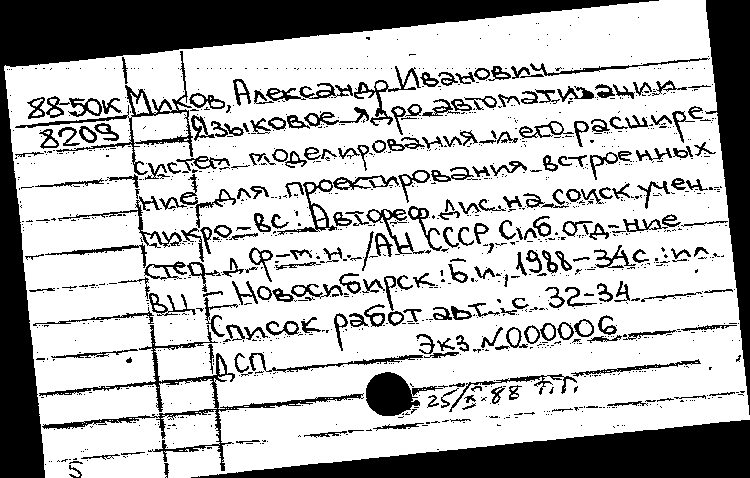 88-50К Миков, Александр Иванович
8209 Языковое ядро автоматизации
систем моделирования и его расшире-
ние для проектирования встроенных
микро-ВС: Автореф. дис. на соиск. учен.
степ. д. ф-м.н. /АН СССР, Сиб. отд-ние
ВЦ. - Новосибирск: Б.и., 1988.-34с.: ил.
Список работ авт.: с. 32-34
ДСП. Экз. N000006
25/ 88
5